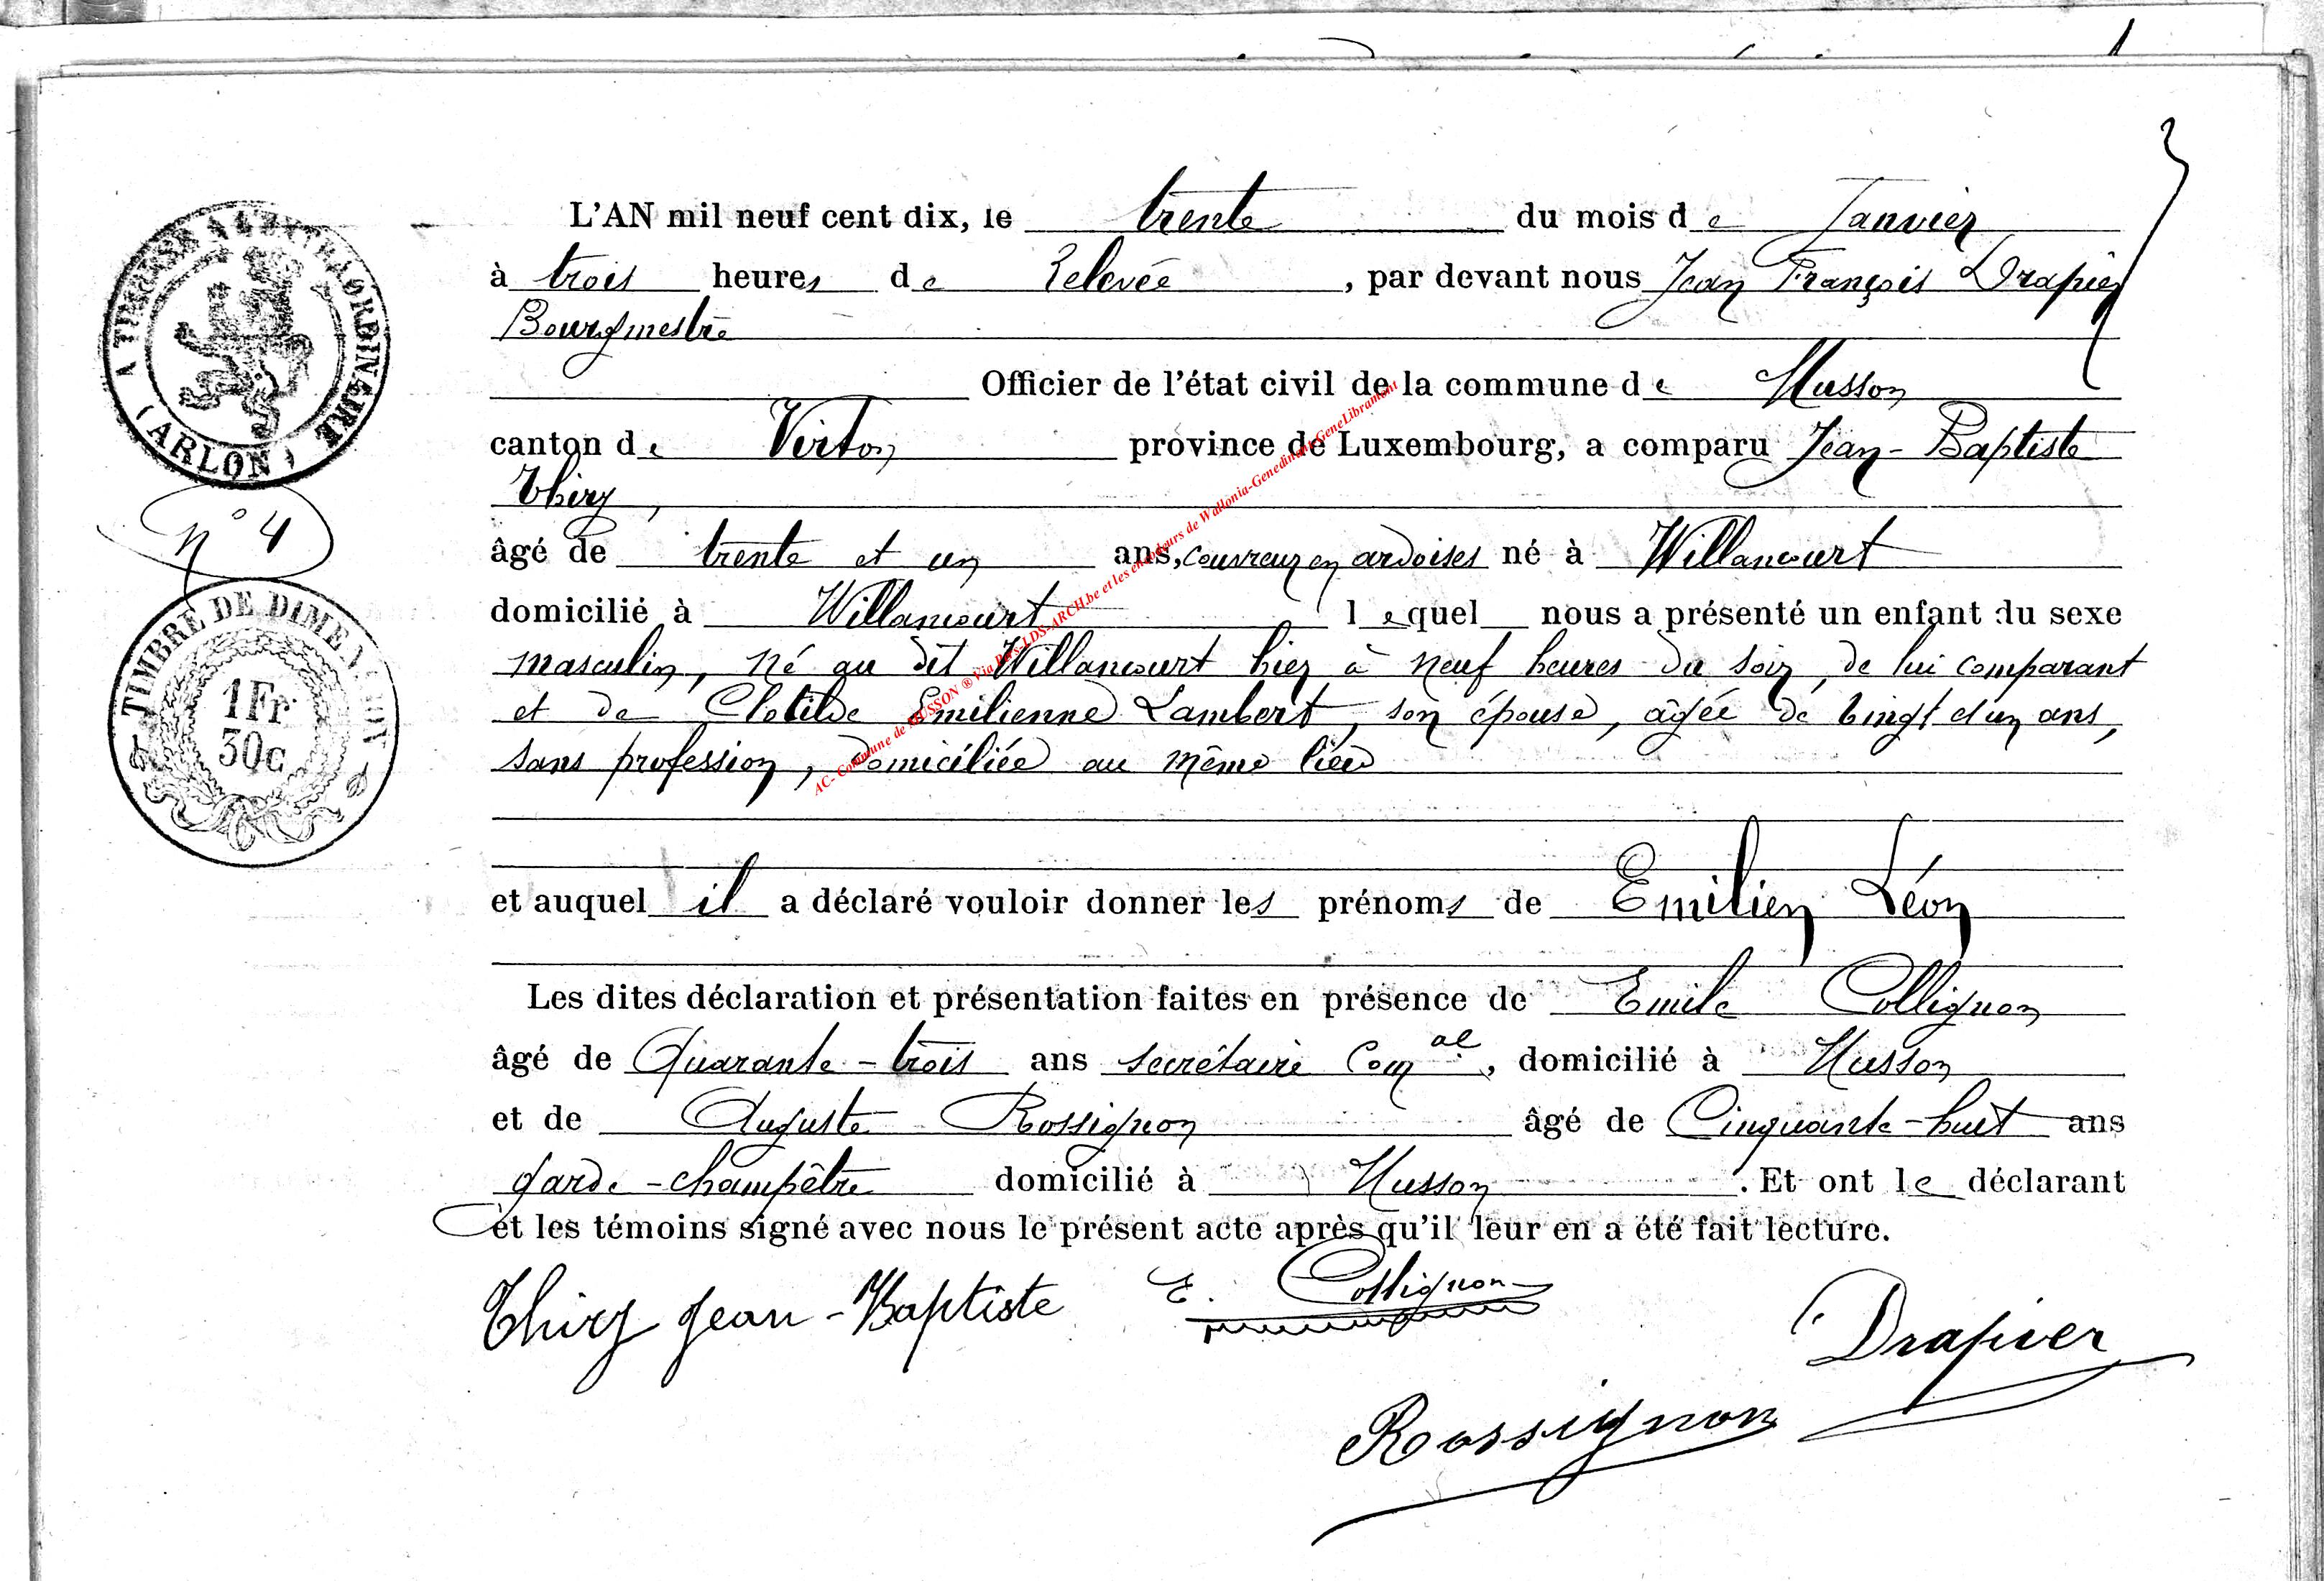 L'AN mil neuf cent dix, le trente du mois de Janvier
à trois heures de Relevée, par devant nous Jean François Drapier
Bourgmestre
Officier de l'état civil de la commune de Musson
canton de Virton province de Luxembourg, a comparu Jean-Baptiste
Thiry,
âgé de trente et un ans, couvreur en ardoises né à Willancourt
domicilié à Willancourt lequel nous a présenté un enfant du sexe
masculin, né au dit Willancourt hier à neuf heures du soir, de lui comparant
et de Clotilde Emilienne Lambert, son épouse, âgée de vingt et un ans,
sans profession, domiciliée au même lieu
et auquel il a déclaré vouloir donner les prénoms de Emilien Léon
Les dites déclaration et présentation faites en présence de Emile Collignon
âgé de Quarante-trois ans secrétaire Comal, domicilié à Musson
et de Auguste Rossignon âgé de Cinquante-huit ans
garde-champêtre domicilié à Musson. Et ont le déclarant
et les témoins signé avec nous le présent acte après qu'il leur en a été fait lecture.
Thiry Jean-Baptiste E. Collignon
Drapier
Rossignon
A TIMBRER A L'EXTRAORDINAIRE
(ARLON)
n° 4
TIMBRE DE DIMENSION
1 Fr
30 c
AC- Commune de MUSSON ® Via Pers-LDS-ARCH.be et les encodeurs de Wallonia-Genedinant-GeneLibramont